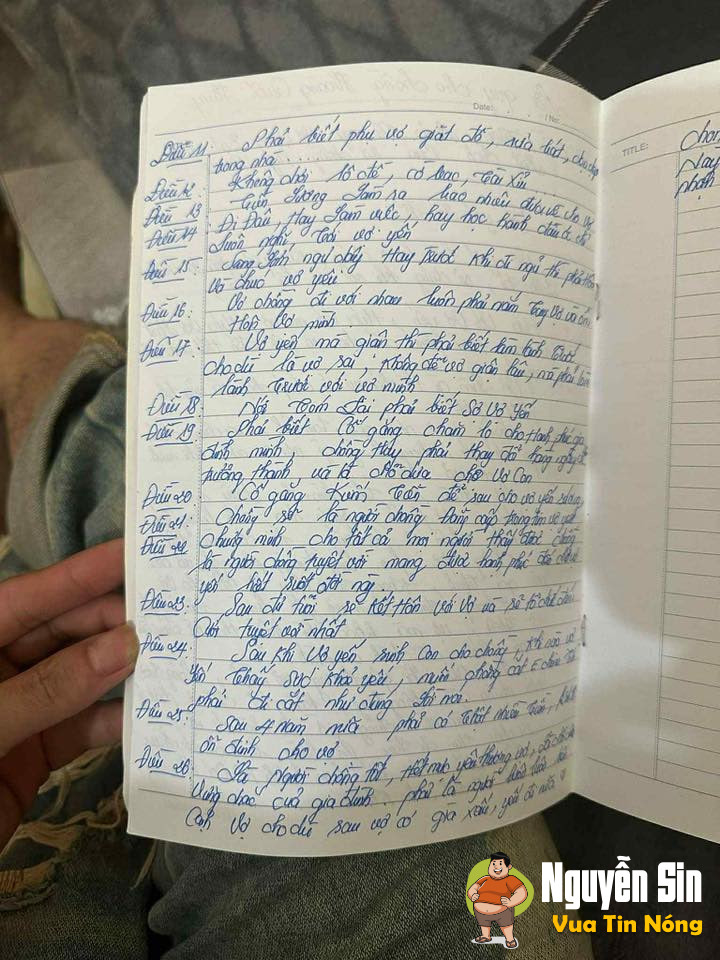 Date: No:
Điều 11: Phải biết phụ vợ giặt đồ, rửa bát,
trong nhà.....
Điều 12 Không chơi lô đề, cờ bạc, tài xỉu
Điều 13 Tiền Lương làm ra bao nhiêu đưa về cho Vợ
Điều 14 Đi Đâu, Hay làm việc, hay học hành
Luôn nghĩ, tới vợ yến
Điều 15 Sáng ngủ dậy Hay trước Khi đi ngủ thì phải
Và chúc vợ yêu
Điều 16 Vợ chồng đi với nhau luôn phải nắm tay Vợ và
Hôn Vợ mình
Điều 17 Vợ yến mà giận thì phải biết làm lành trước
cho dù là vợ sai, không để vợ giận lâu, mà phải làm
lành trước với vợ mình
Điều 18 Nói Tóm lại phải biết Sợ Vợ Yến
Điều 19 Phải biết Cố gắng chăm lo cho Hạnh phúc gia
đình mình, chồng Hãy phải thay đổi hàng ngày
trưởng thành và là chỗ dựa cho Vợ Con
Điều 20 Cố gắng Kiếm tiền để sau cho vợ yến
Điều 21 Chồng sẽ là người chồng đẳng cấp trong tim vợ yến
Điều 22 Chứng minh cho tất cả mọi người thấy được chồng
là người chồng tuyệt vời mang được hạnh phúc đến cho vợ
yến hết suốt đời này
Điều 23 Sau đủ tuổi sẽ kết Hôn với Vợ và sẽ tổ chức đám
Cưới tuyệt vời nhất
Điều 24 Sau khi Vợ yến sinh Con cho chồng, khi nào vợ
Yến Thấy sức Khoẻ yếu,
phải đi cắt
Điều 25 Sau 4 năm nữa phải có thật nhiều tiền,
ổn định cho vợ
Điều 26 Là Người chồng tốt, Hết mực yêu thương vợ,
Vững chắc của gia đình. phải là người
Cạnh Vợ cho dù sau vợ có già xấu, yếu đi nữa
TITLE:
Nguyễn Sin
Vua Tin Nóng